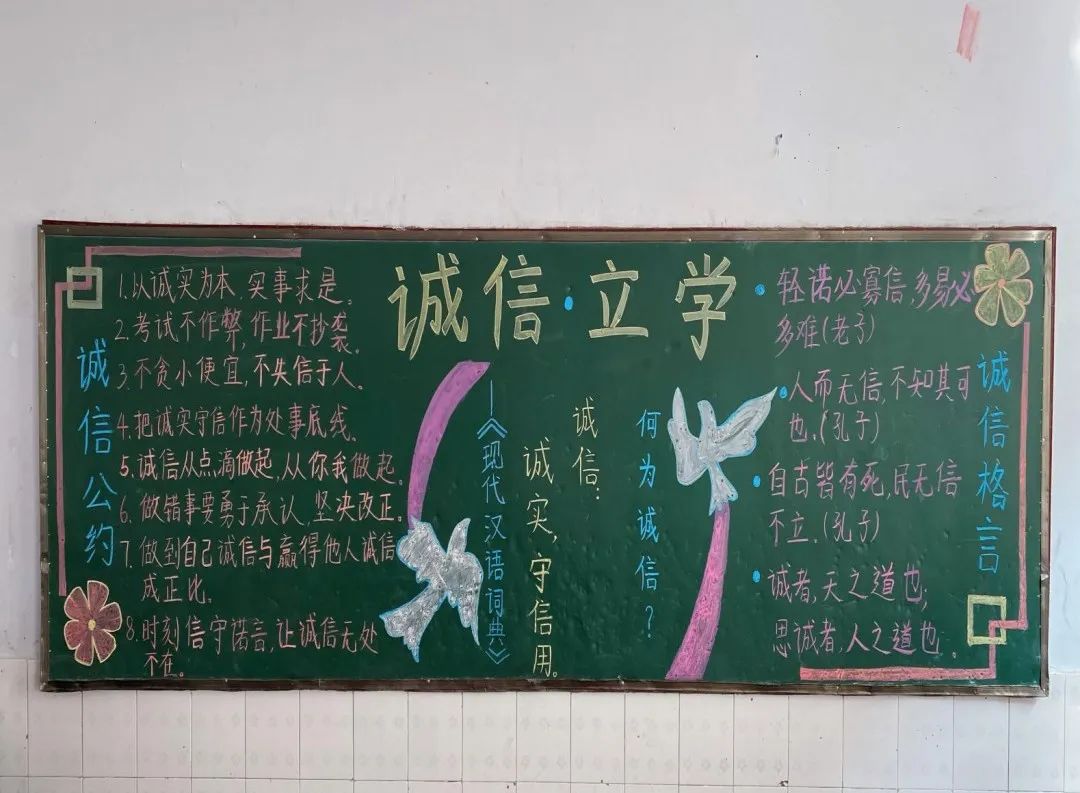 诚信·立学
诚信公约
1.以诚实为本,实事求是。
2.考试不作弊,作业不抄袭。
3.不贪小便宜,不失信于人。
4.把诚实守信作为处事底线。
5.诚信从点滴做起,从你我做起。
6.做错事要勇于承认,坚决改正。
7.做到自己诚信与赢得他人诚信
成正比。
8.时刻信守诺言,让诚信无处
不在。
何为诚信?
诚信:
诚实,守信用。
—《现代汉语词典》
诚信格言
·轻诺必寡信,多易必
多难(老子)
·人而无信,不知其可
也.(孔子)
·自古皆有死,民无信
不立.(孔子)
·诚者,天之道也;
思诚者,人之道也.